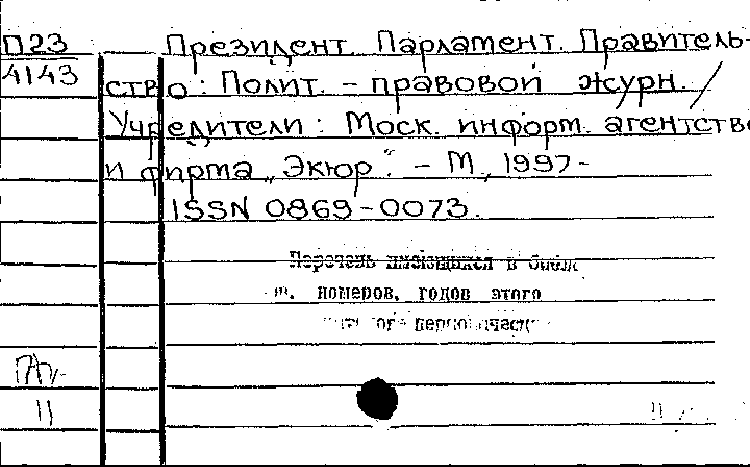 П23
4143
Президент. Парламент. Правитель-
ство: Полит. - правовой журн. /
Учредители: Моск. информ. агентство
и фирма „Экюр“. - М., 1997-
ISSN 0869-0073.
Перечень имеющихся в библ
номеров, годов этого
11